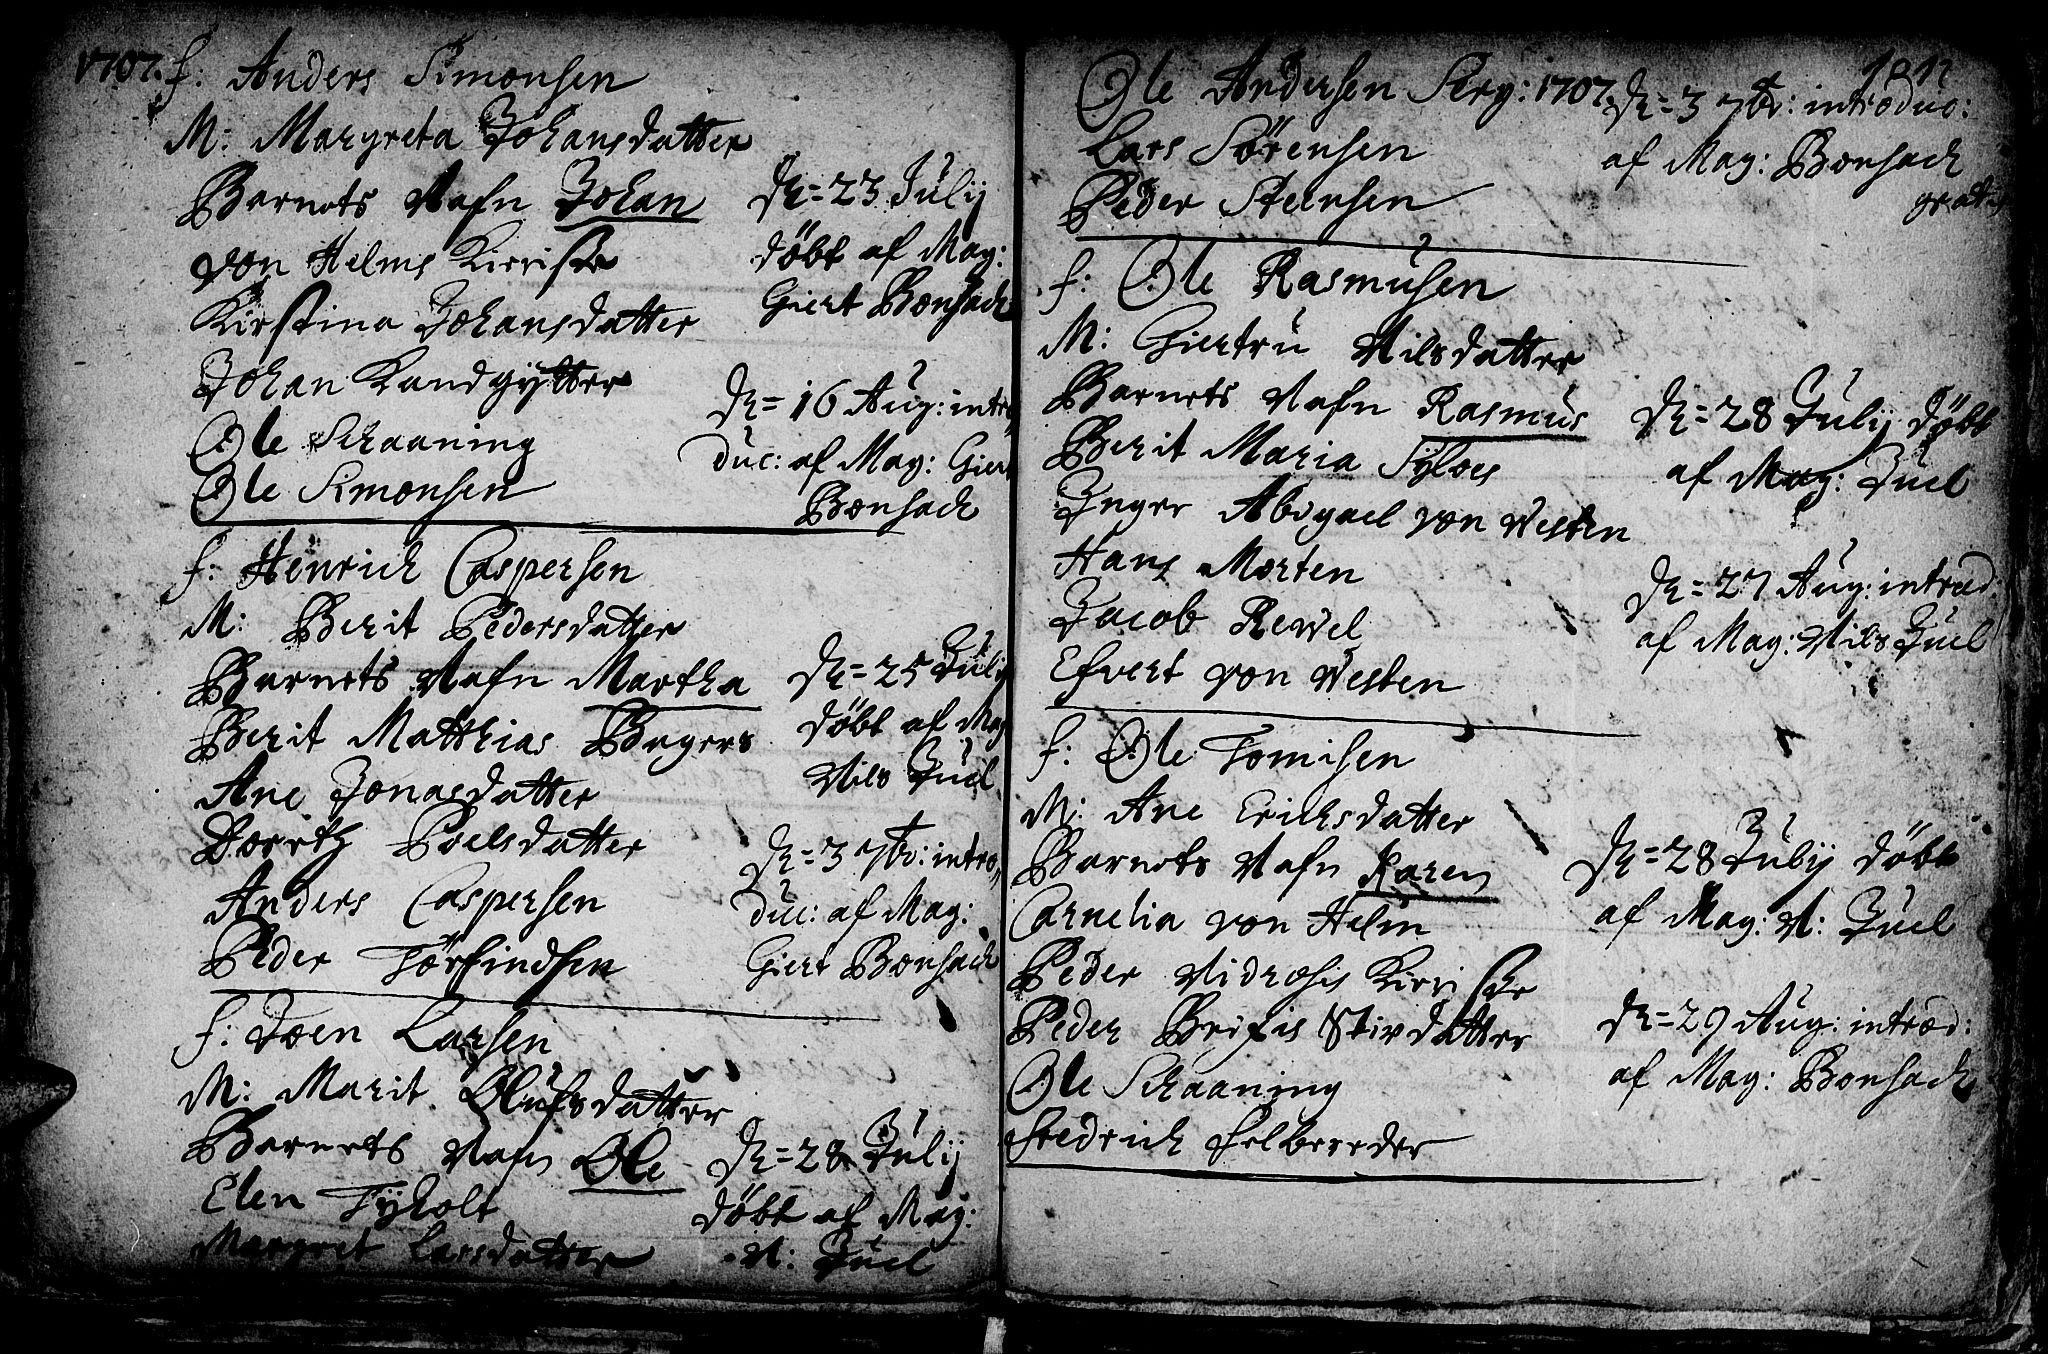 1707. f: Anders Simonsen
M: Margreta Johansdatter
Barnets Nafn Johan
von Helms Kirriste
Kirstina Johansdatter
Johan Kandgytter
Ole Schaaning
Ole Simonsen
D. = 23 Julij
döbt af Mag:
Giert Bonsach
D. = 16 Aug: intro
duc: af Mag: Giert
Bonsach
f: Henrich Caspersen
M: Berit Pedersdatter
Barnets Nafn Martha
Berit Matthias Bagers
Ane Jonasdatter
Dorrth Poelsdatter
Anders Caspersen
Peder Torfindsen
D. = 25 Julij
döbt af Mag
Nils Juel
D. = 3 7br: intro,
duc: af Mag:
Giert Bonsach
f: Joen Larsen
M: Marit Olufsdatter
Barnets Nafn Ole
Elen Tyholt
Margret Larsdatter
D. = 28 Julij
döbt af Mag:
N: Juel
Ole Andersen 1707.
Lars Sörensen
Peder Steensen
D. = 3 7br: introduc:
af Mag: Bonsach
gratis
f: Ole Rasmusen
M: Giertru Nilsdatter
Barnets Nafn Rasmus
Berit Maria Sylves
Inger Abigael von Westen
Hans Morten
Jacob Rewel
Efvert von Westen
D. = 28 Julij döbt
af Mag: Juel
D. = 27 Aug: introd:
af Mag: Nils Juel
f: Ole Tomisen
M: Ane Erichsdatter
Barnets Nafn Karen
Cornelia von Helm
Peder Nidrosis Kirriste
Peder Brixis Stivdatter
Ole Schaaning
Fredrich Felbereder
D. = 28 Julij döbt
af Mag: N: Juel
D. = 29 Aug: introd:
af Mag: Bonsach